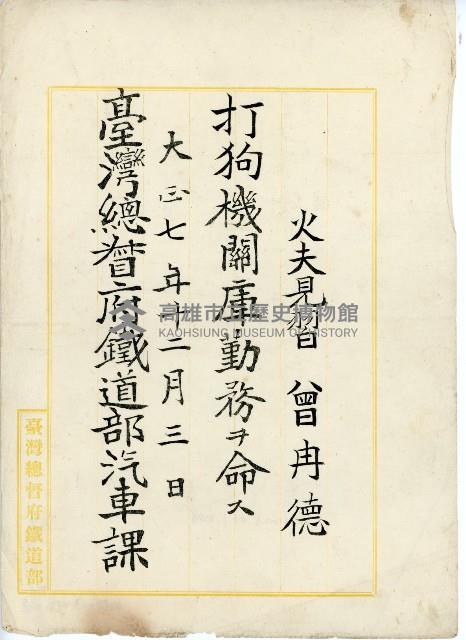 火夫見習 曾冉德
打狗機關庫勤務ヲ命ス
大正七年十二月三日
臺灣總督府鐵道部汽車課
臺灣總督府鐵道部
高雄市立歷史博物館
KAOHSIUNG MUSEUM OF HISTORY